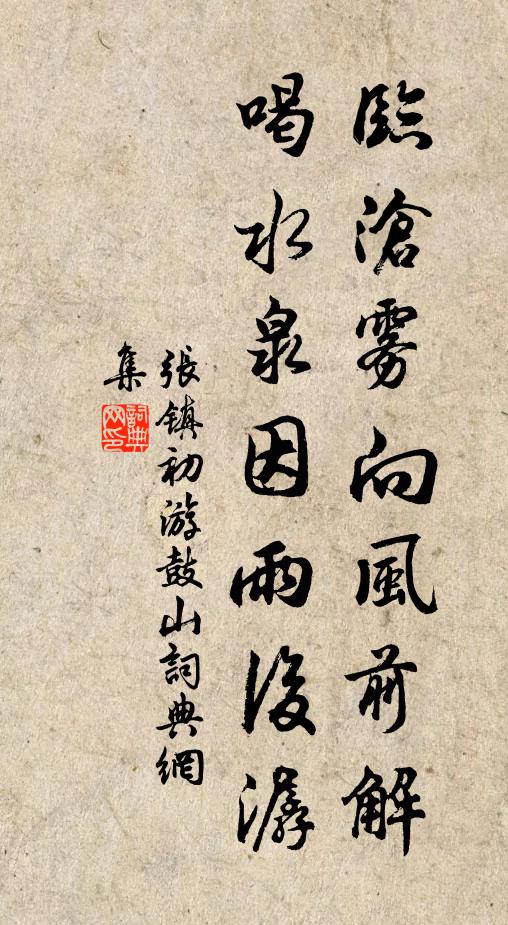 臨滄雾向風前解
喝水泉因雨後潺
張镇初游鼓山詞典網
集
詞典
网印